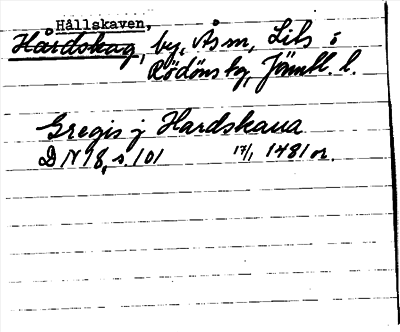 Hållskaven,
Hårdskag, by, Ås sn, Lits o
Rödöns tg, Jämtl. l.
Gregis j Hardskaua
DN 78, s. 101 17/1 1481 or.